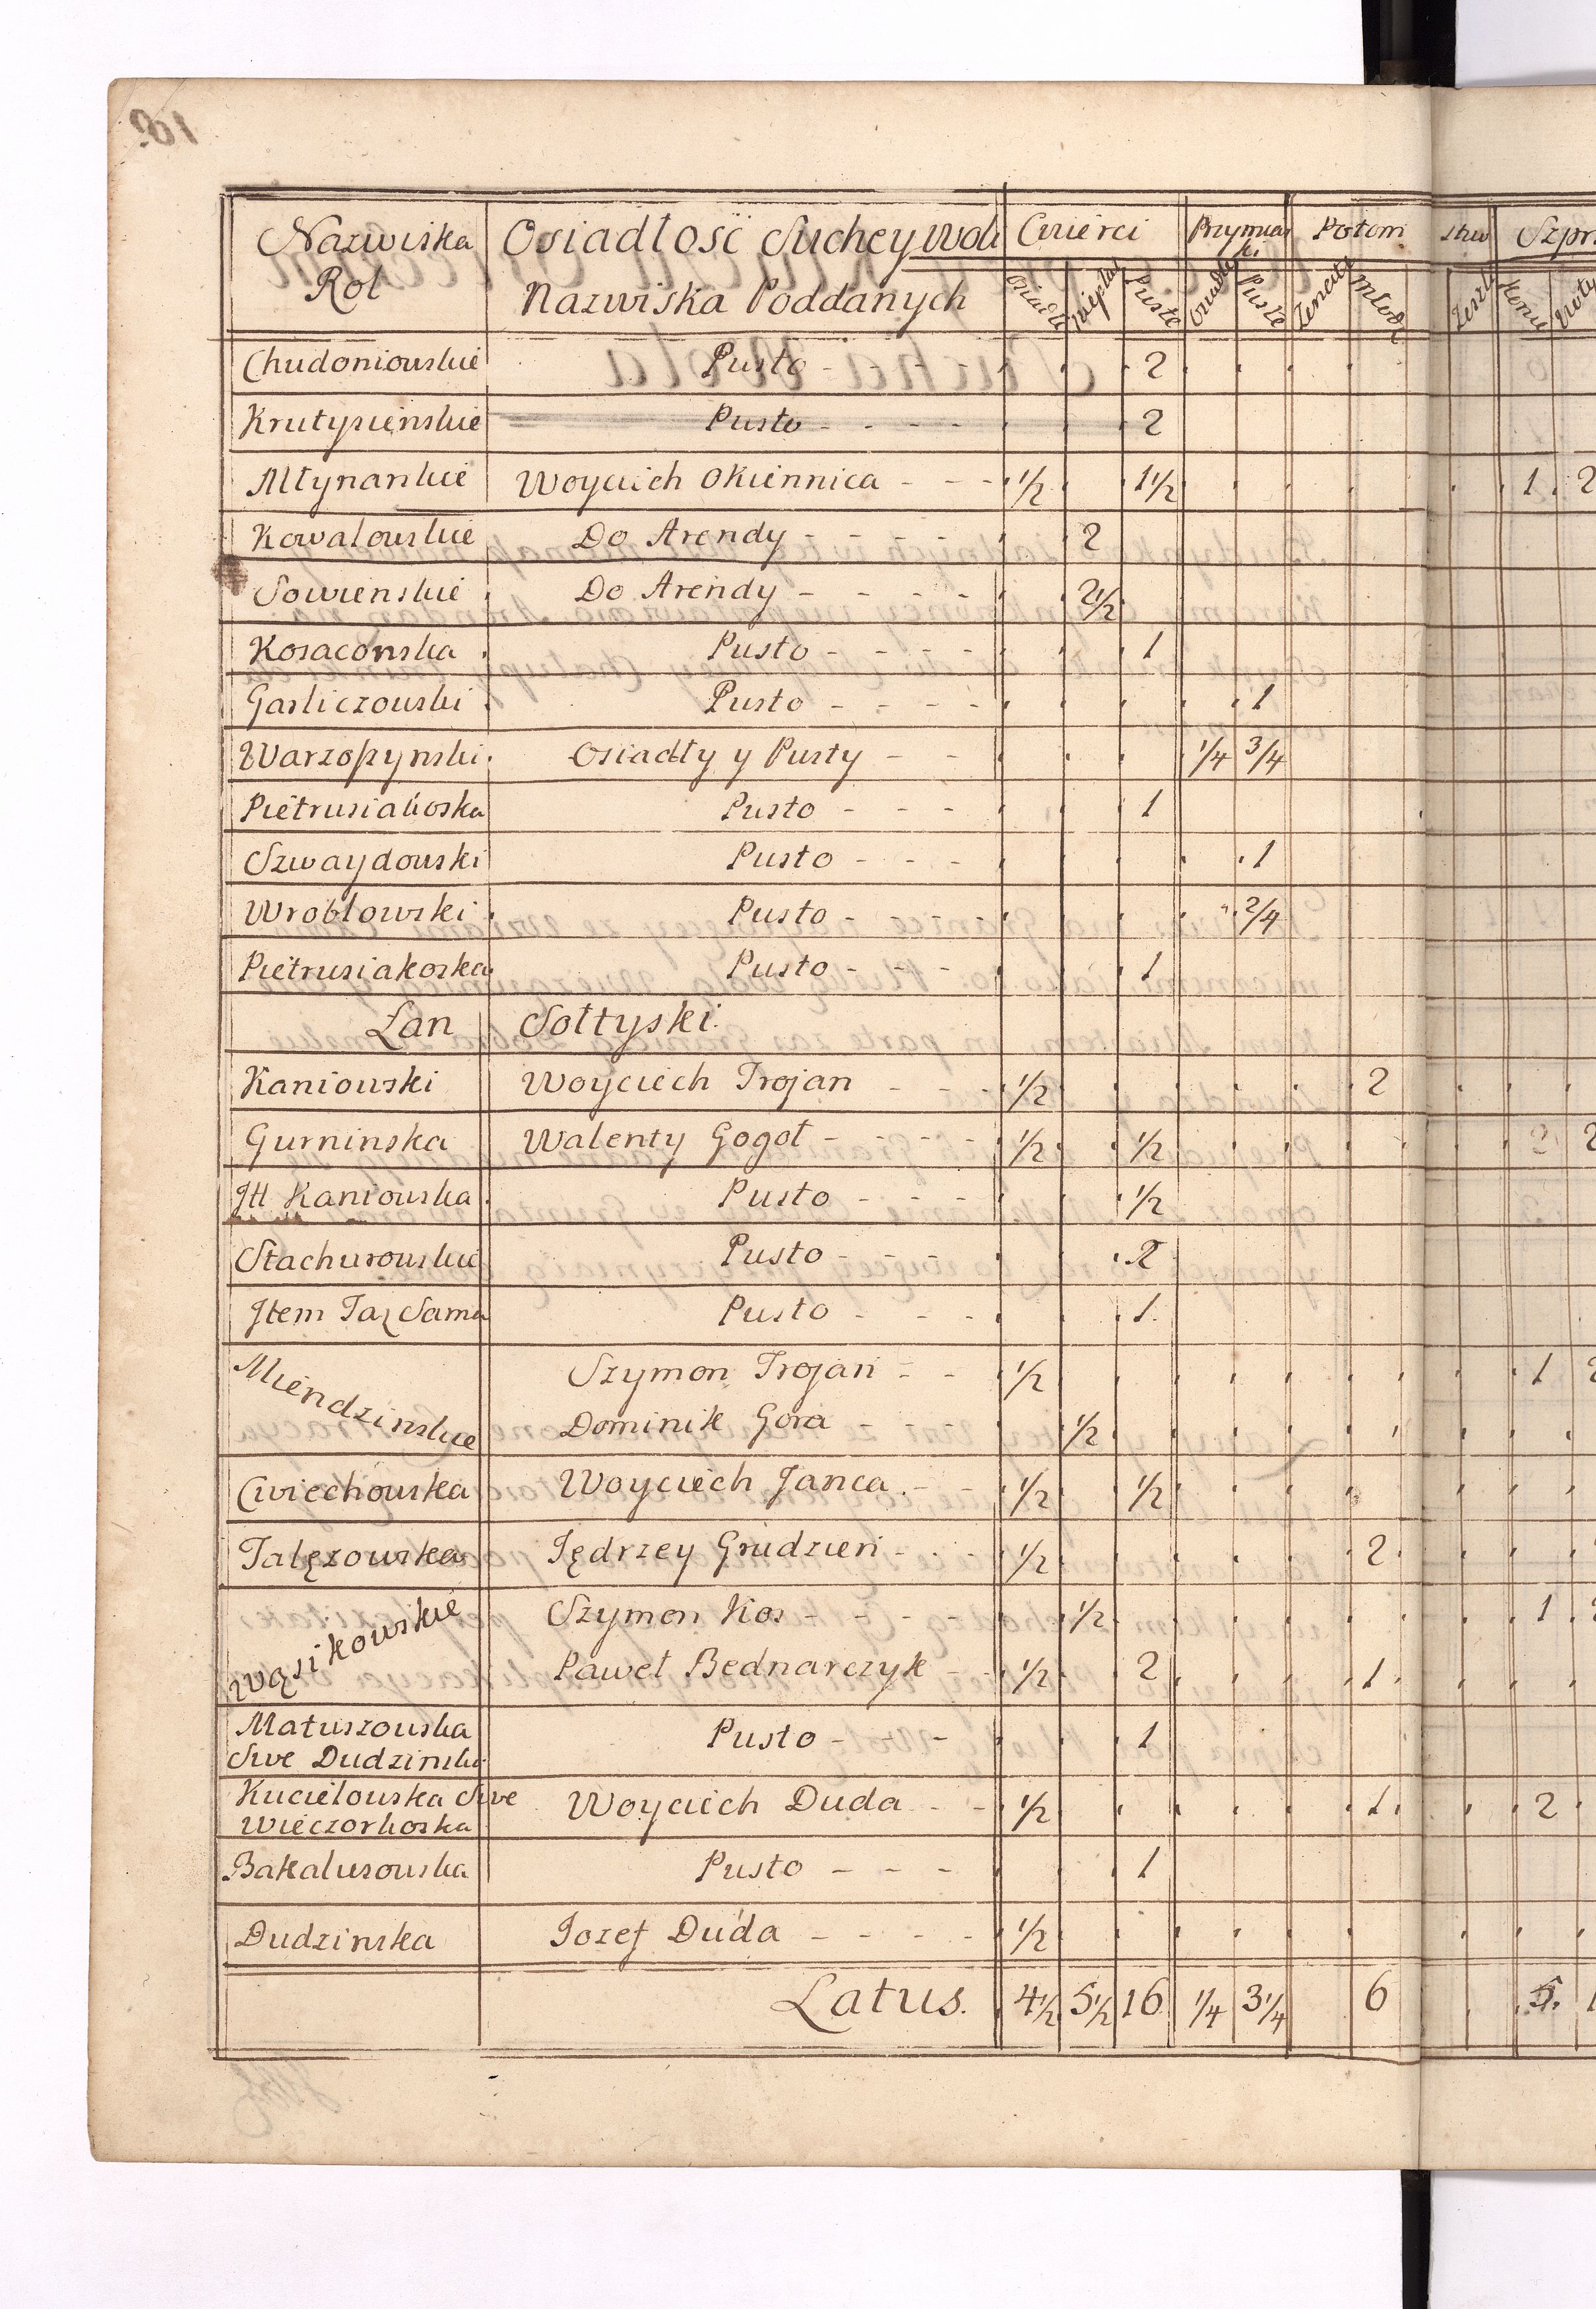 Nazwiska Rol | Osiadłość Suchey Woli | Cwierci | Przymiarki | Potom | stwo | Szprz
Nazwiska Poddanych | Osiadłe | Puste | Osiadłe | Puste | Zenciali | Młodzi | Zeszli | Konie | Woły
Chudoniowskie | Pusto - - - - | 2
Krutysienskie | Pusto - - - - | 2
Młynarskie | Woyciich Okiennica - - - | 1/2 | 1 1/2 | 1 | 2
Kowalowskie | Do Arendy - - - - - | 2
Sowienskie | Do Arendy - - - - | 2 1/2
Kosaconska | Pusto - - - - - | 1
Garliczowski | Pusto - - - - | 1
Warzopynski | Osiadły y Pusty - - | 1/4 | 3/4
Pietrusiakoska | Pusto - - - - | 1
Szwaydowski | Pusto - - - | 1
Wroblowski | Pusto - - - - | 2/4
Pietrusiakoska | Pusto - - - - | 1
Łan | Sołtyski.
Kaniowski | Woyciech Trojan - - - | 1/2 | 2
Gurninska | Walenty Gogoł - - - - | 1/2 | 1/2 | 2 | 2
Jtt Kaniowska | Pusto - - - - | 1/2
Stachurowskie | Pusto - - - - | 2
Jtem Taz Sama | Pusto - - - | 1
Miendzinskie | Szymon Trojan - - | 1/2 | 1 | 2
Dominik Gora - - - | 1/2
Cwiechowska | Woyciech Janca - - | 1/2 | 1/2
Talęzowska | Jędrzey Grudzień - - - | 1/2 | 2
Wąsikowskie | Szymon Kos - - - - | 1/2 | 1
Paweł Bednarczyk - - | 1/2 | 2 | 1
Matuszowska | Pusto - - - | 1
Sive Dudzinska
Kucielowska Sive | Woyciech Duda - - | 1/2 | 1 | 2
Wieczorkoska
Bakalurowska | Pusto - - - | 1
Dudzinska | Jozef Duda - - - - | 1/2
Latus. | 4 1/2 | 5 1/2 | 16 | 1/4 | 3 1/4 | 6 | 5